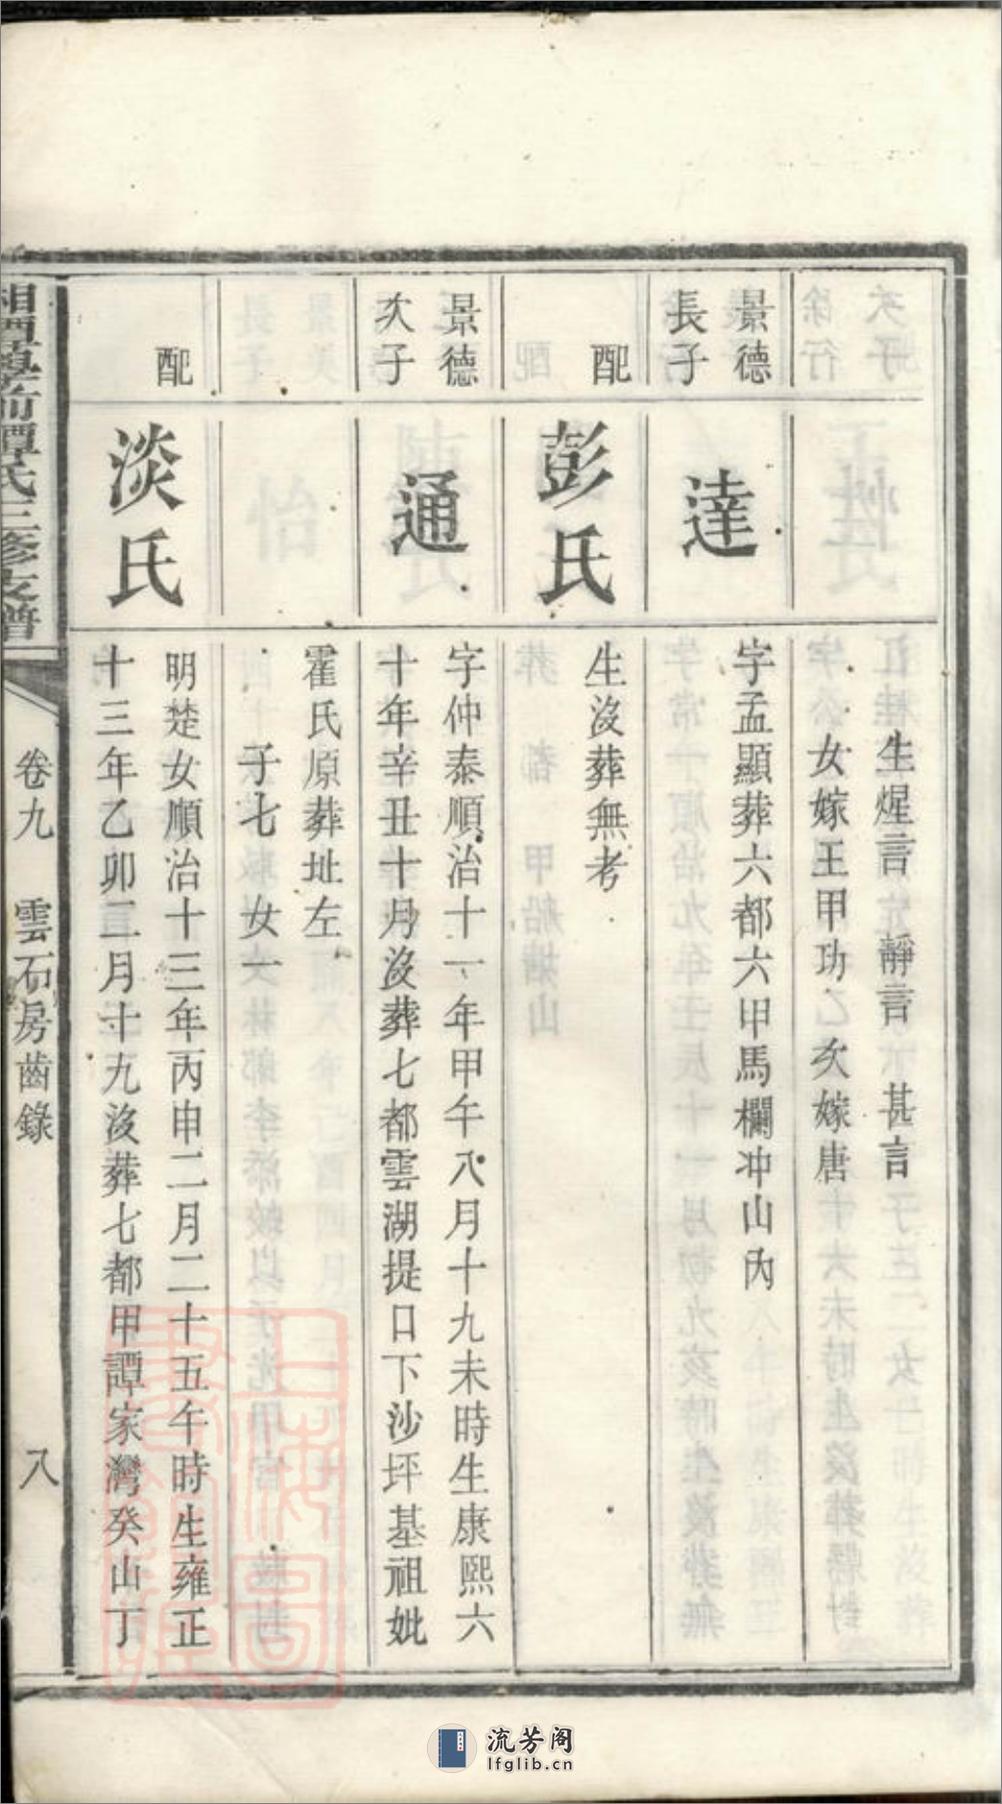 生煋言　靜言　甚言
女嫁王甲功乙次嫁唐
景德
長子
達
字孟顯葬六都六甲馬欄冲山內
配
彭氏
生沒葬無考
景德
次子
通
字仲泰順治十一年甲午八月十九未時生康熙六
十年辛丑十月沒葬七都雲湖提口下沙坪基祖妣
霍氏原葬址左
子七　女一
配
淡氏
明楚女順治十三年丙申二月二十五午時生雍正
十三年乙卯二月十九沒葬七都甲譚家灣癸山丁
氏三修支譜
卷九　雲石房齒錄
八
流芳阁
lfglib.cn